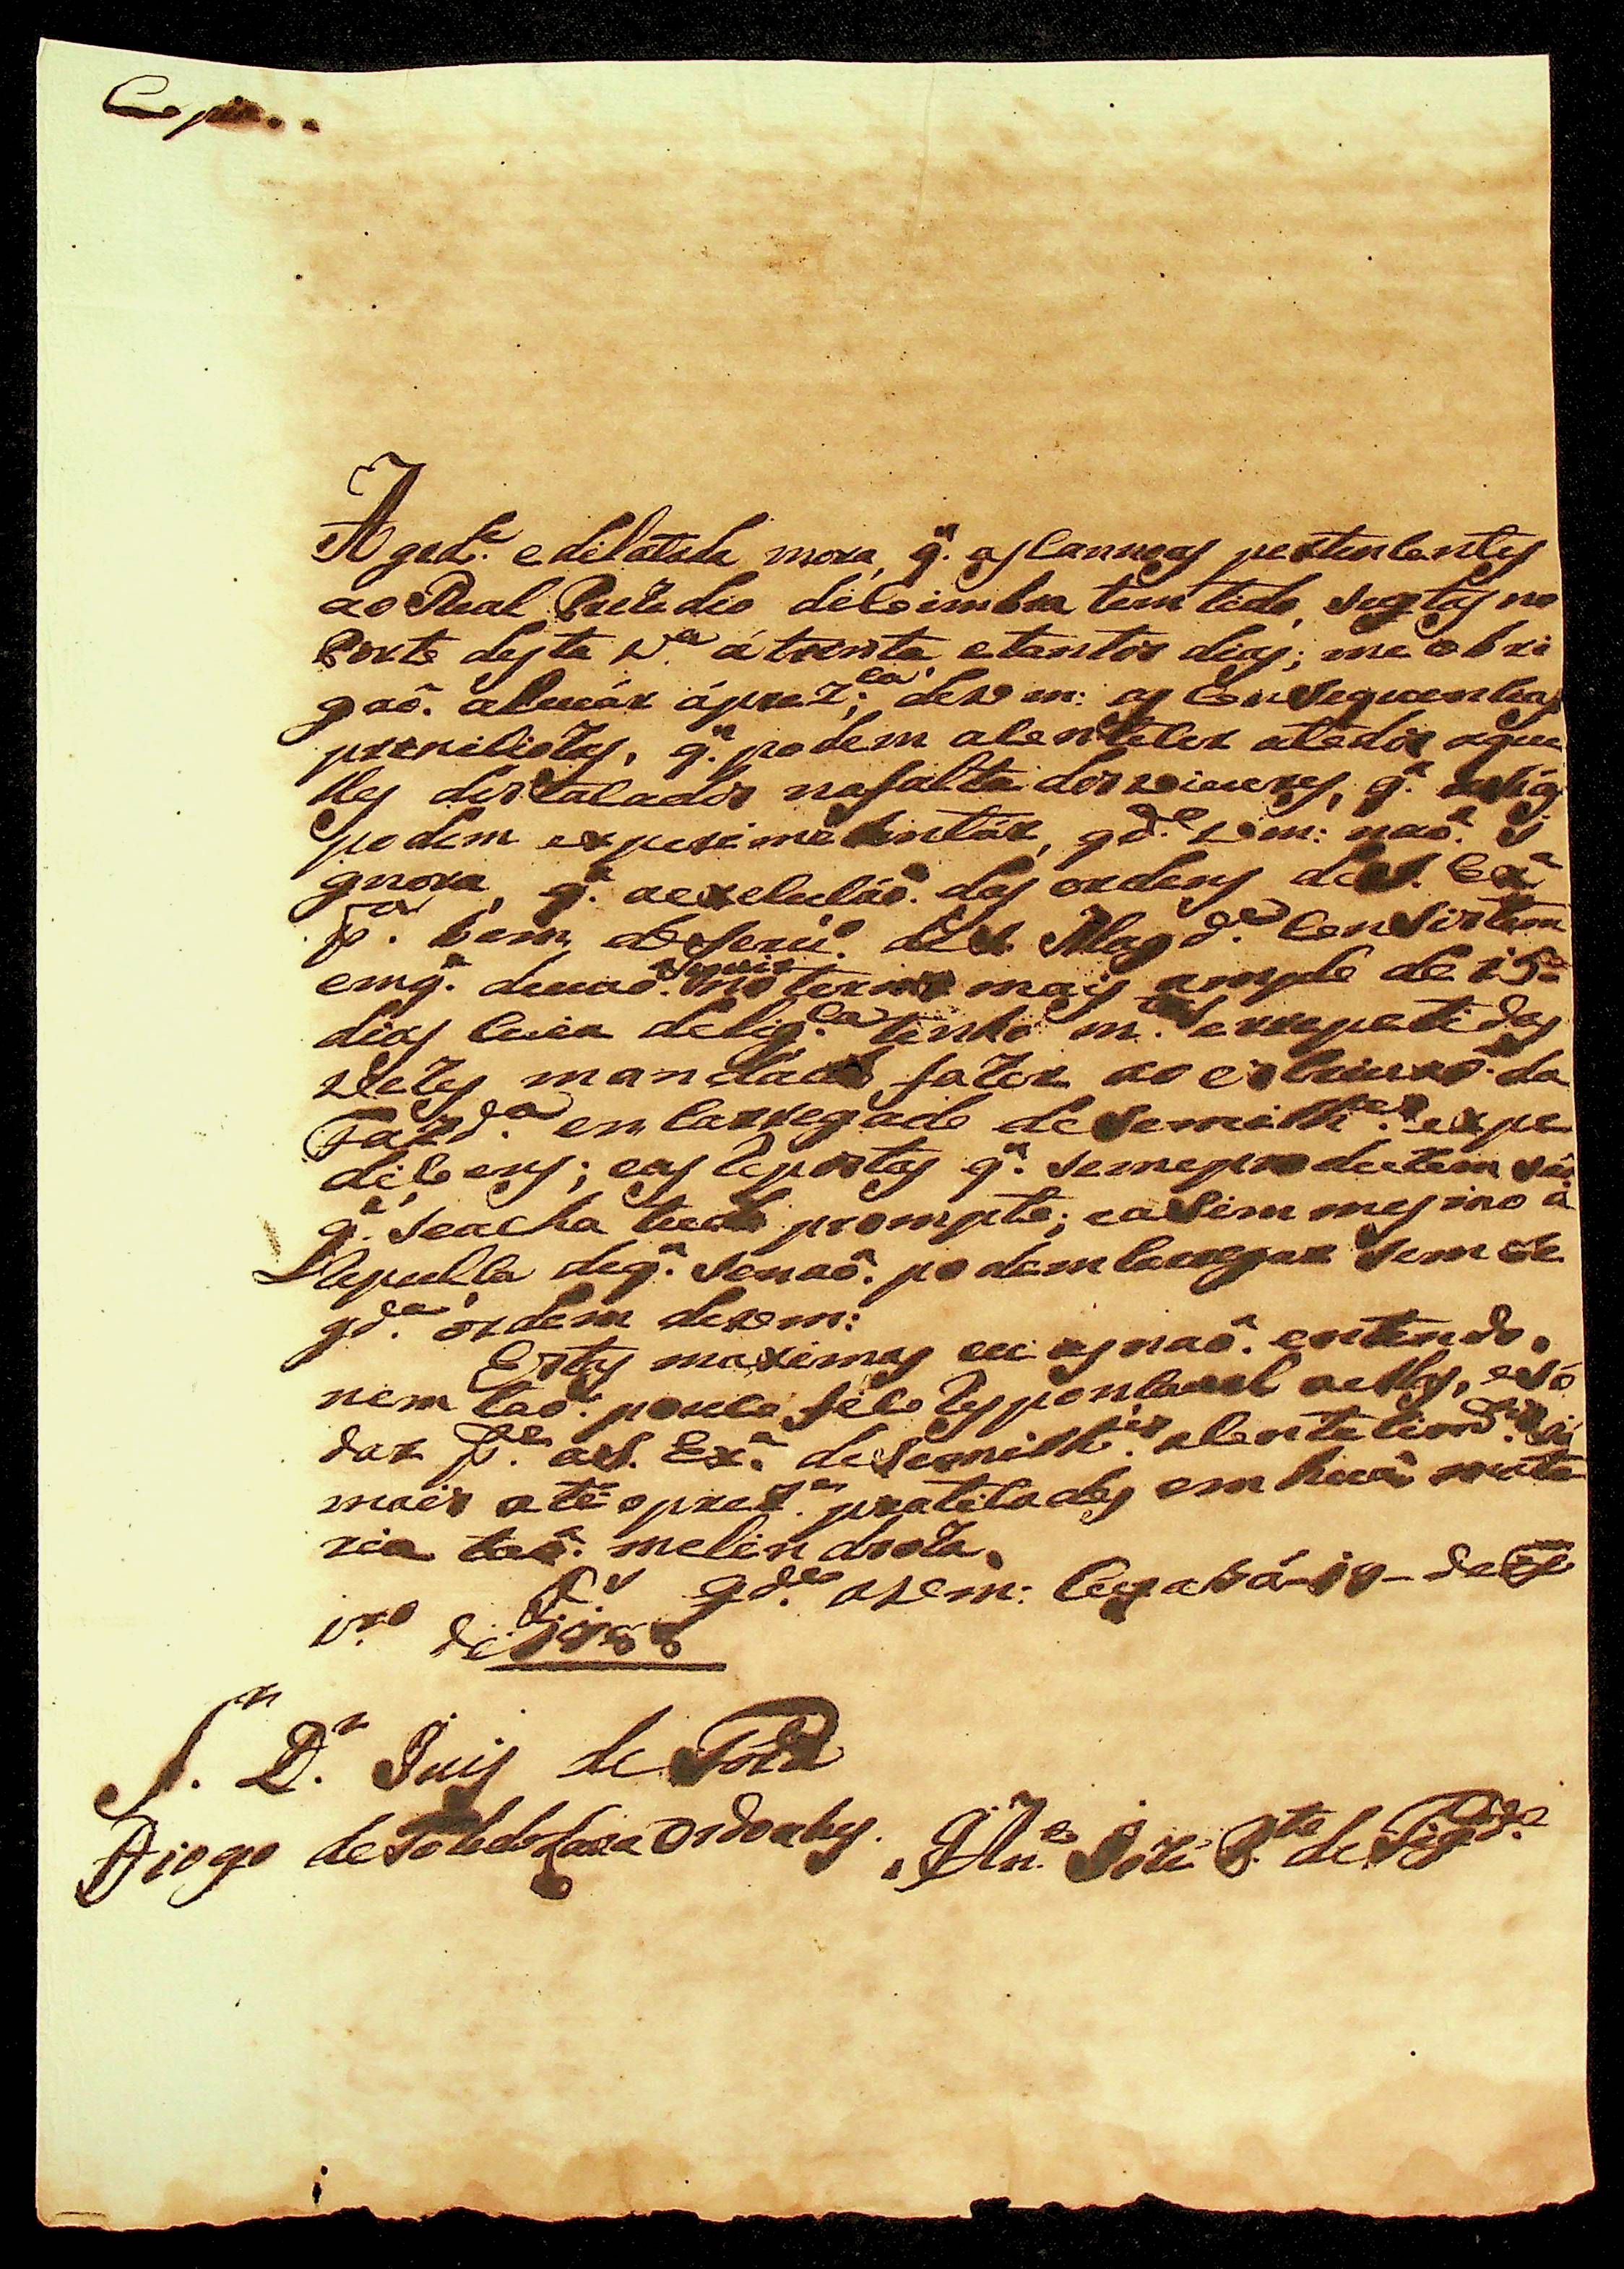 Copia..
A grd.e e dilatada mora, q.' as Cannoas pertencentes
ao Real Prezidio de Coimbra tem tido, surtas no
Porto desta V.a á trinta e tantos dias; me obri
gaõ. a levár á prez.ca de vm: as Consequencias
prexudiciozas, q.' podem acontecer a todos aque
lles destacados na falta dos viveres, q.'
podem experimentár, qd.o vm: naõ. i
gnora, q.' a execuçaõ. das ordens de S. Ex.a
p.a bem do serv.o de S. Mag.de Consistem
em q.' de naõ. no termo mais amplo de 15
dias Cuia delig.ca tenho m.tas e repetidas
vezes mandado fazer ao escrivaõ. da
Fazd.a encarregado de semilh.es expe
dicoens; e as repostas q.' se me produzem saõ
q.' se acha tudo prompto; e a sim mesmo a
Repulsa de q.' se naõ. podem carregar sem se
gd.a ordem de vm:
Estas maximas eu as naõ. entendo,
nem taõ. pouco fico responsavel a ellas, e só
dar p.e a S. Ex.a de semilh.es acontecim.tos já
mais até o prez.e praticados em huã mate
ria taõ. melindroza.
D.s gd.e a vm: Cuyabá 19 de
br.o de
S.r D.r Juis de Fóra
Diogo de Toledo Lara Ordonhes. An.to Jozé P.to de Figd.o